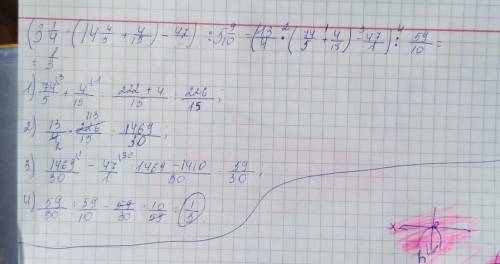 (3 1/4 · (14 4/5 + 4/15) - 47) : 5 9/10 = (13/4 · (74/5 + 4/15) - 47/1) : 59/10 =
= 1/3
1) 74/5 + 4/15 = 222+4/15 = 226/15 ;
2) 13/4 · 226/15 = 1469/30 ;
3) 1469/30 - 47/1 = 1469-1410/30 = 59/30 ;
4) 59/30 : 59/10 = 59/30 · 10/59 = 1/3
x